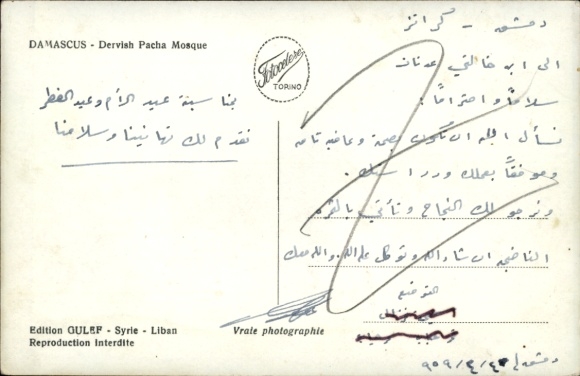 DAMASCUS - Dervish Pacha Mosque
Fotocelere
TORINO
بمناسبة عيد الأم وعيد الفطر
نقدم لك تهانينا وسلامنا
دمشق -
الى ابن خالتي عدنان
سلاماً واحتراماً:
نسأل الله ان تكون بصحة وعافية تامه
وموفقاً بعملك ودراستك.
ونرجو لك النجاح وتأتي
ان شاء الله وتوكل على الله والله معك
Edition GULEF - Syrie - Liban
Reproduction Interdite
Vraie photographie
دمشق في